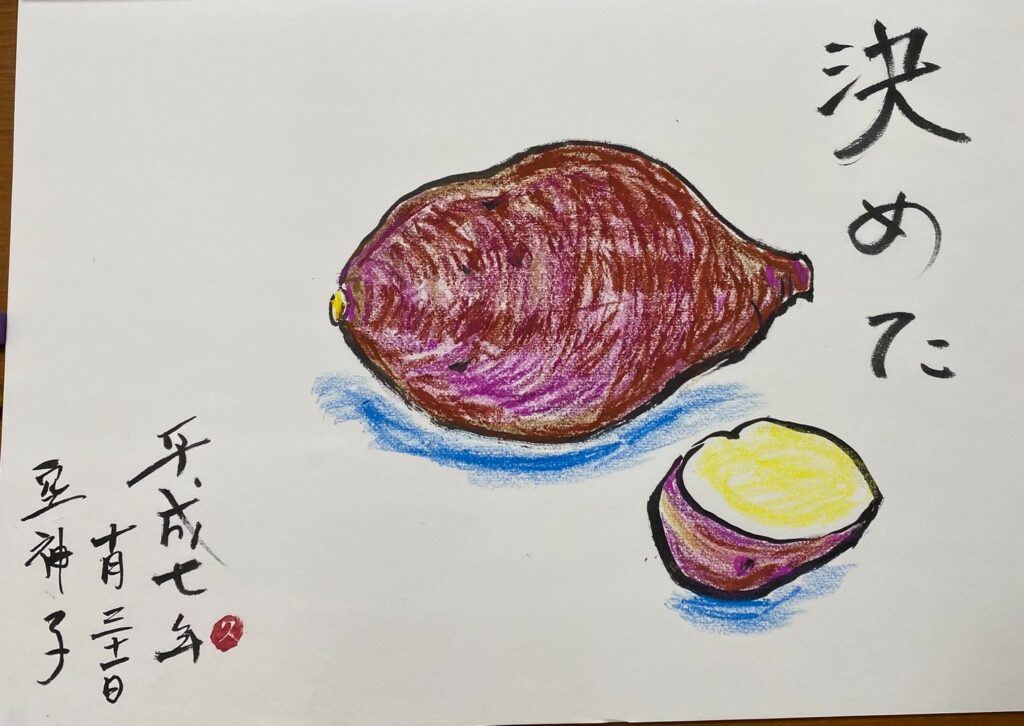 決めた
平成七年
十月三十一日
神子
久